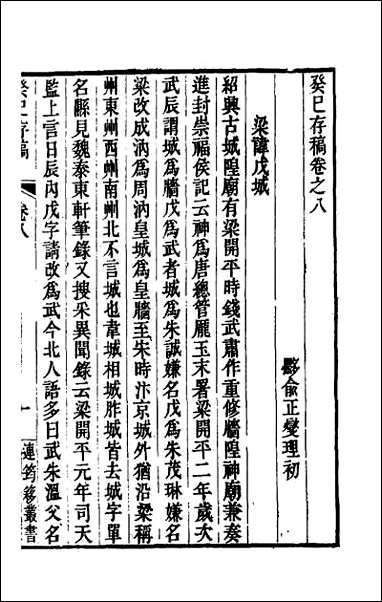 癸巳存稿卷之八
黟俞正燮理初
梁諱戊城
紹興古城隍廟有梁開平時錢武肅作重修牆隍神廟兼奏
進封崇福侯記云神為唐總管龎玉末署梁開平二年歲次
武辰謂城為牆戊為武者城為朱誠嫌名戊為朱茂琳嫌名
梁改成汭為周汭皇城為皇牆至朱時汴京城外猶沿梁稱
州東州西州南州北不言城也韋城相城胙城皆去城字單
名縣見魏泰東軒筆錄又搜采異聞錄云梁開平元年司天
監上言日辰內戊字請改為武今北人語多曰武朱溫父名
癸巳存稿
卷八
一
連筠簃叢書